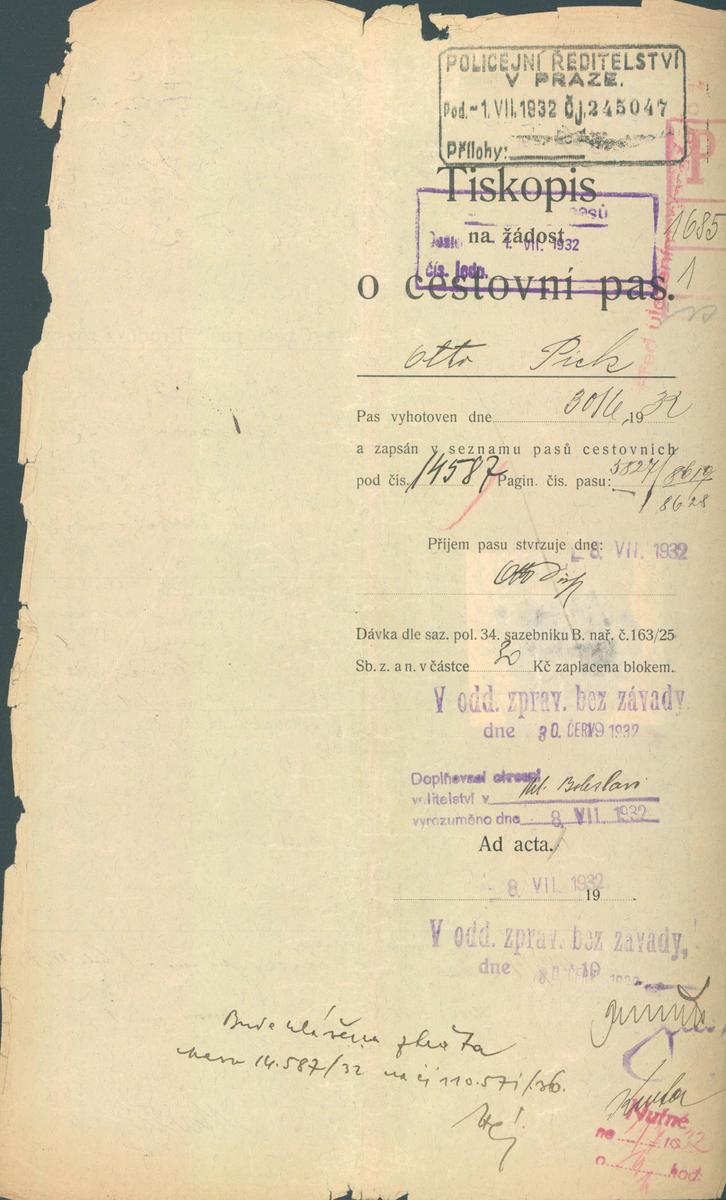 POLICEJNÍ ŘEDITELSTVÍ
V PRAZE.
Pod. - 1. VII. 1932 Čj. 245047
Přílohy:
Tiskopis
na žádost
1. VII. 1932
čís. jedn.
o cestovní pas.
1685
1
Otto Pick
Pas vyhotoven dne 30/6, 1932
a zapsán v seznamu pasů cestovních
pod čís. 14587 Pagin. čís. pasu: 5827/8619
8628
Příjem pasu stvrzuje dne: - 8. VII. 1932
Otto Pick
Dávka dle saz. pol. 34. sazebníku B. nař. č. 163/25
Sb. z. a n. v částce 30 Kč zaplacena blokem.
V odd. zprav. bez závady
dne 30. ČERV 1932
Doplňovací okresní
velitelství v Ml. Boleslavi
vyrozuměno dne 8. VII. 1932
Ad acta.
- 8. VII. 1932
19
V odd. zprav. bez závady,
dne 30. ČERV 19
Bude hlášena ztráta
pasu 14.587/32 na čj 110.571/36.
Nutné
na 1932
o hod.